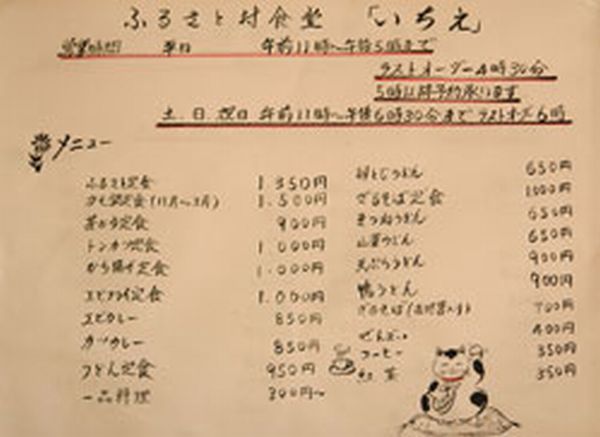 ふるさと村食堂 「いちえ」
営業時間 平日 午前11時～午后5時まで
ラストオーダー4時30分
5時以降予約承ります
土、日、祝日 午前11時～午後6時30分まで ラストオーダー6時
メニュー
ふるさと定食 1.350円
(11月～3月) 1.500円
定食 900円
トンカツ定食 1.000円
から揚げ定食 1.000円
エビフライ定食 1.000円
エビカレー 850円
カツカレー 850円
うどん定食 950円
一品料理 300円～
卵とじうどん 650円
ざるそば定食 1000円
きつねうどん 650円
山菜うどん 650円
天ぷらうどん 900円
鴨うどん 900円
ざるそば 700円
ぜんざい 400円
コーヒー 350円
紅茶 350円